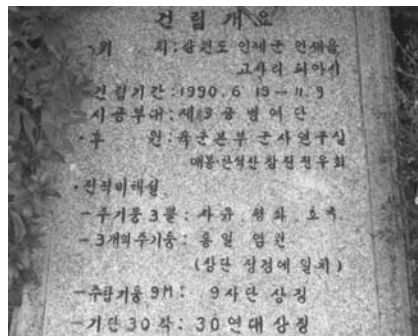 건립개요
·위 치:강원도 인제군 인제읍
고사리 피아시
건립기간:1990.6 19-11.9
시공부대:제3공병여단
·후 원:육군본부 군사연구실
매봉·한석산 참전전우회
·전적비해설
-주기둥 3뿔:자유 평화
-3개의주기둥:통일 염원
(상단 정점에 일치)
-주탑기둥9M: 9사단 상징
-기단30각:30연대 상징